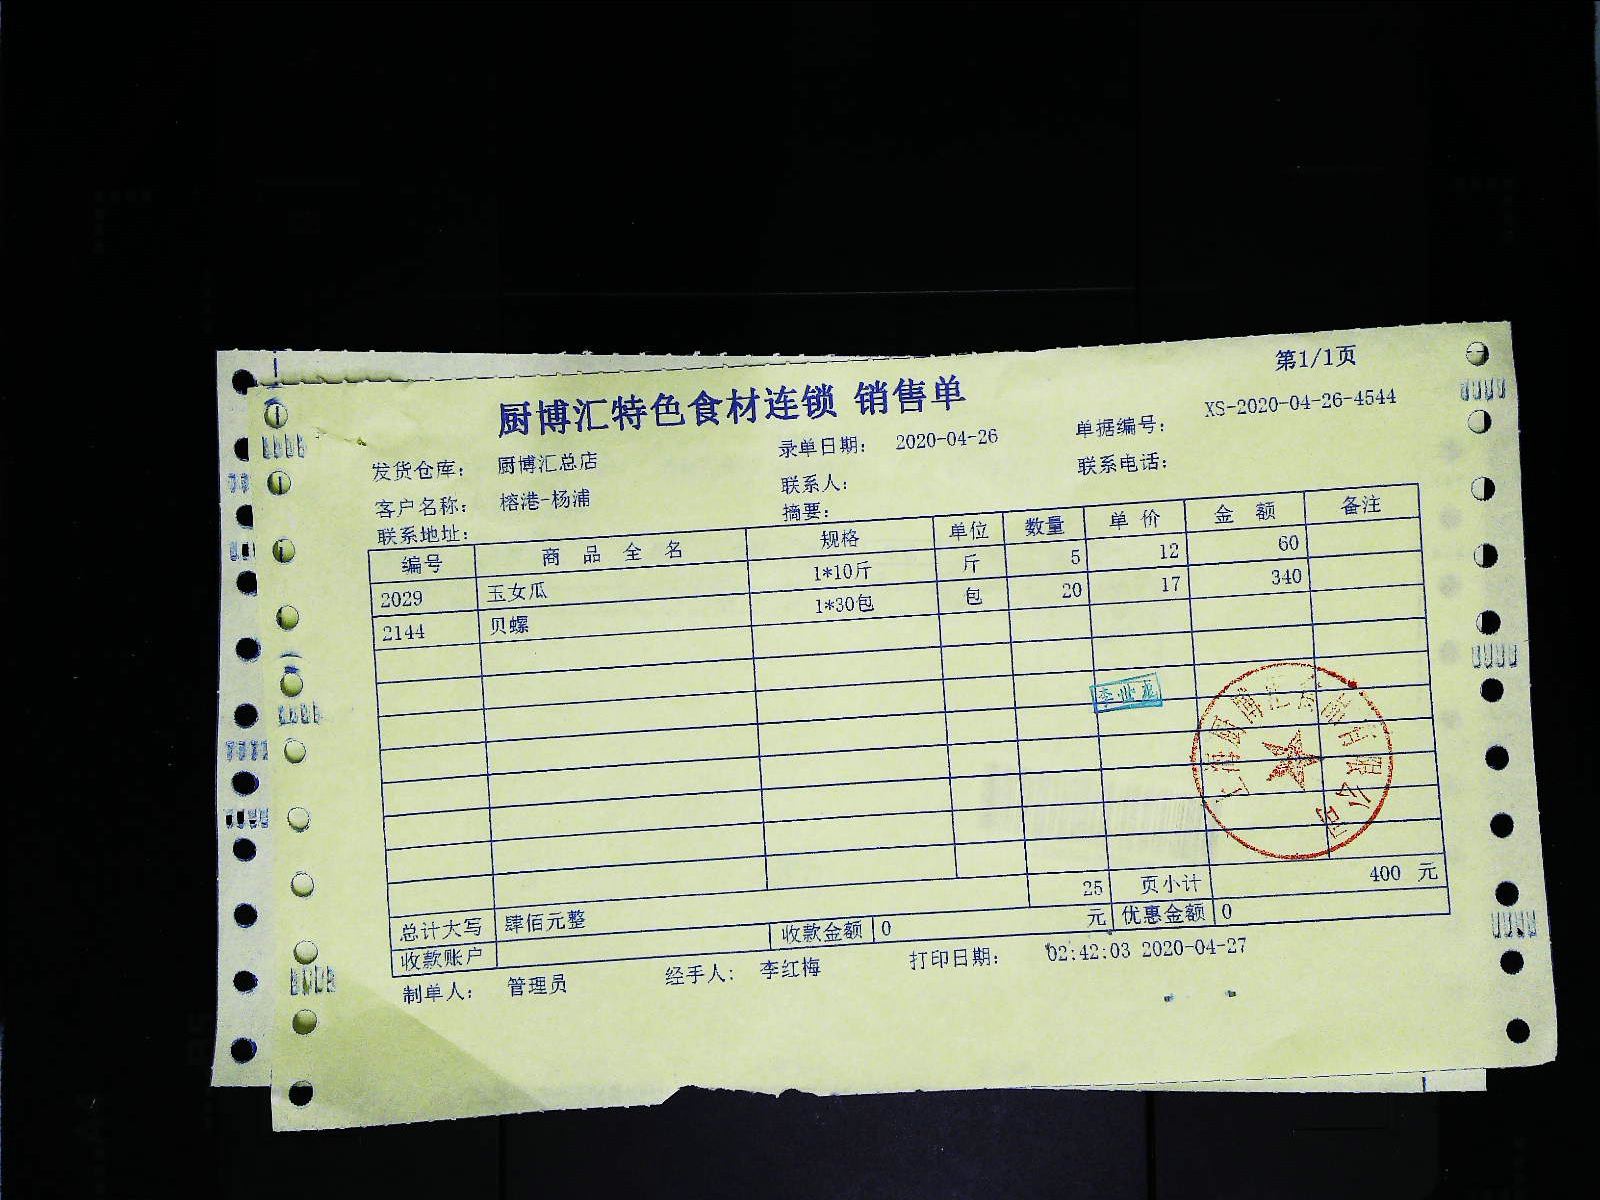 第1/1页
厨博汇特色食材连锁 销售单
发货仓库： 厨博汇总店 录单日期： 2020-04-26 单据编号： XS-2020-04-26-4544
客户名称： 榕港-杨浦 联系人： 联系电话：
联系地址： 摘要：
编号 商 品 全 名 规格 单位 数量 单 价 金 额 备注
2029 玉女瓜 1*10斤 斤 5 12 60
2144 贝螺 1*30包 包 20 17 340
25 页小计 400 元
总计大写 肆佰元整 元 优惠金额 0
收款账户 收款金额 0
制单人： 管理员 经手人： 李红梅 打印日期： 02:42:03 2020-04-27